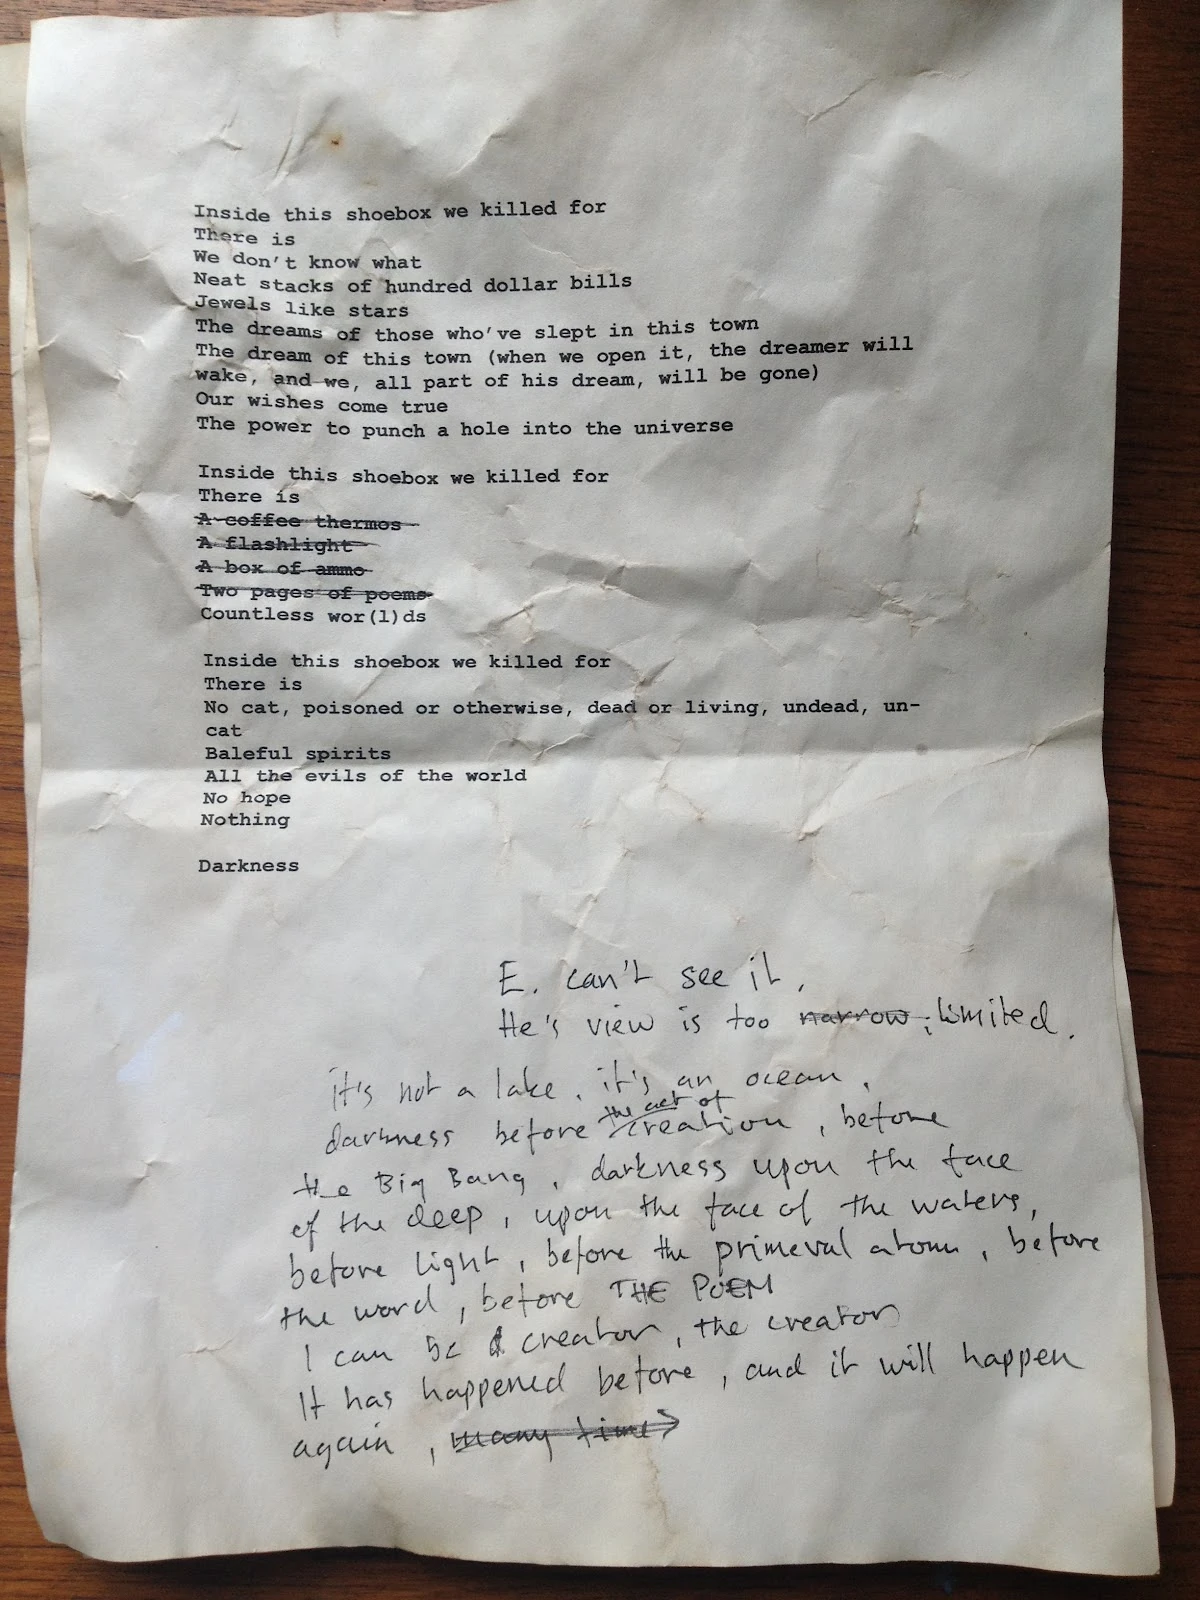 Inside this shoebox we killed for
There is
We don't know what
Neat stacks of hundred dollar bills
Jewels like stars
The dreams of those who've slept in this town
The dream of this town (when we open it, the dreamer will
wake, and we, all part of his dream, will be gone)
Our wishes come true
The power to punch a hole into the universe
Inside this shoebox we killed for
There is
A coffee thermos
A flashlight
A box of ammo
Two pages of poems
Countless wor(l)ds
Inside this shoebox we killed for
There is
No cat, poisoned or otherwise, dead or living, undead, un-
cat
Baleful spirits
All the evils of the world
No hope
Nothing
Darkness
E. can't see it.
He's view is too narrow, limited.
it's not a lake. it's an ocean.
the act of
darkness before creation, before
the Big Bang, darkness upon the face
of the deep, upon the face of the waters,
before light, before the primeval atom, before
the word, before THE POEM
I can be creator, the creator
It has happened before, and it will happen
again, many times